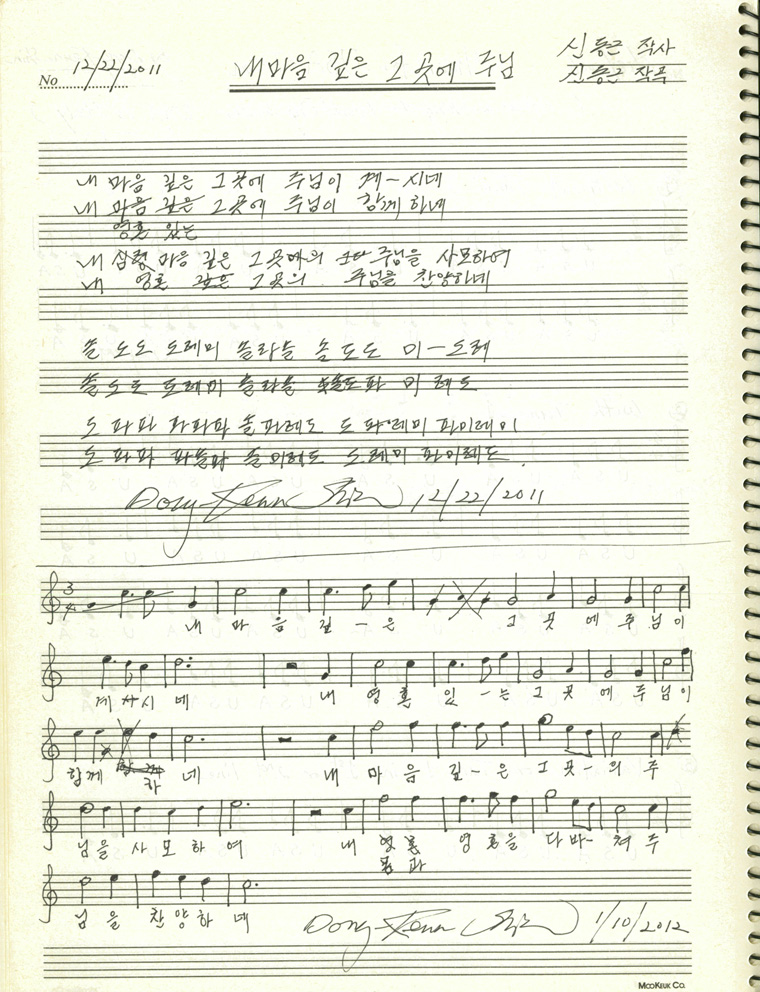 No 12/22/2011
내 마음 깊은 그 곳에 주님
신동근 작사
신동근 작곡
내 마음 깊은 그 곳에 주님이 계-시네
내 마음 깊은 그 곳에 주님이 함께 하네
영혼 있는
내 심령 마음 깊은 그 곳에의 주님을 사모하여
내 영혼 깊은 그 곳의 주님을 찬양하네
쏠 도도 도레미 쏠라쏠 쏠 도도 미-도레
쏠 도도 도레미 쏠라쏠 쏠도파 미 레도
도 파파 파파파 쏠파레도 도 파레미 파미레미
도 파파 파쏠파 쏠미레도 도레미 파미레도.
Dong Keun Shin 12/22/2011
3/4
내 마 음 깊 - 은 그 곳 에 주 님 이
계 시 네 내 영 혼 있 - 는 그 곳 에 주 님 이
함 께 하 네 내 마 음 깊 - 은 그 곳 - 의 주
님 을 사 모 하 여 내 영 혼 영 혼 을 다 바 - 쳐 주
몸 과
님 을 찬 양 하 네
Dong Keun Shin 1/10/2012
MOOKEUK CO.